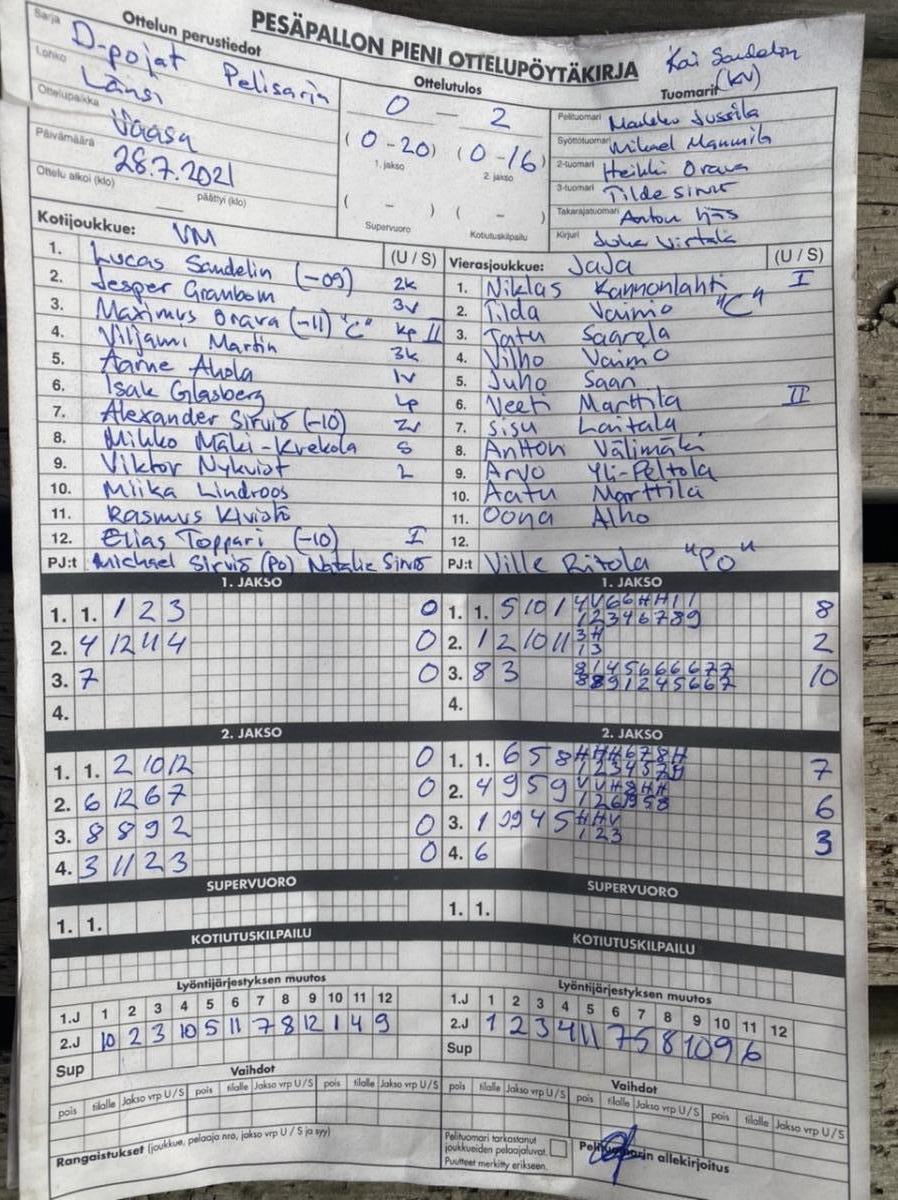 PESÄPALLON PIENI OTTELUPÖYTÄKIRJA
Kai Sandelin
(KV)
Ottelun perustiedot
Sarja D-pojat Pelisarja
Lohko Länsi
Ottelupaikka Vaasa
Päivämäärä 28.7.2021
Ottelu alkoi (klo) päättyi (klo)
Ottelutulos
0 — 2
(0-20) (0-16)
1. jakso 2. jakso
( - ) ( - )
Supervuoro Kotiutuskilpailu
Tuomarit
Pelituomari Markko Jussila
Syöttötuomari Mikael Mannila
2-tuomari Heikki Orava
3-tuomari Tilde Sirviö
Takarajatuomari Anton Ijäs
Kirjuri Juha Virtala
Kotijoukkue: VM (U / S)
1. Lucas Sandelin (-09) 2k
2. Jesper Granbom 3v
3. Maximus Orava (-11) "C" kp II
4. Viljami Martin 3k
5. Aarne Ahola 1v
6. Isak Glasberg Lp
7. Alexander Sirviö (-10) 2v
8. Mikko Mäki-Krekola S
9. Viktor Nykvist L
10. Miika Lindroos
11. Rasmus Kivistö
12. Elias Toppari (-10) I
PJ:t Michael Sirviö (PO) Natalie Sirviö
Vierasjoukkue: JaJa (U / S)
1. Niklas Kannonlahti I
2. Tilda Vainio "C"
3. Jatu Saarela
4. Vilho Vainio
5. Juho Saari
6. Veeti Marttila II
7. Sisu Laitala
8. Antton Välimäki
9. Arvo Yli-Peltola
10. Aatu Marttila
11. Oona Alho
12.
PJ:t Ville Ritola "PO"
1. JAKSO
1. 1. 1 2 3 0
2. 4 12 4 4 0
3. 7 0
4.
1. JAKSO
1. 1. 5 10 1 4 V 6 6 H H 1 1 8
1 2 3 4 6 7 8 9
2. 1 2 10 11 3 H 2
1 3
3. 8 3 8 1 4 5 6 6 6 6 7 7 10
4.
2. JAKSO
1. 1. 2 10 12 0
2. 6 12 6 7 0
3. 8 8 9 2 0
4. 3 11 2 3 0
2. JAKSO
1. 1. 6 5 8 H H H 6 7 8 H 7
2. 4 9 5 9 V V H 8 H H 6
3. 1 10 9 4 5 H H V 3
1 2 3
4. 6
SUPERVUORO
1. 1.
SUPERVUORO
1. 1.
KOTIUTUSKILPAILU
KOTIUTUSKILPAILU
Lyöntijärjestyksen muutos
1.J 1 2 3 4 5 6 7 8 9 10 11 12
2.J 10 2 3 10 5 11 7 8 12 1 4 9
Sup
Lyöntijärjestyksen muutos
1.J 1 2 3 4 5 6 7 8 9 10 11 12
2.J 1 2 3 4 11 7 5 8 10 9 6
Sup
Vaihdot
pois tilalle Jakso vrp U / S pois tilalle Jakso vrp U / S pois tilalle Jakso vrp U / S
Vaihdot
pois tilalle Jakso vrp U / S pois tilalle Jakso vrp U / S pois tilalle Jakso vrp U / S
Rangaistukset (joukkue, pelaaja nro, jakso vrp U / S ja syy)
Pelituomari tarkastanut
joukkueiden pelaajaluvat.
Puutteet merkitty erikseen.
Pelituomarin allekirjoitus